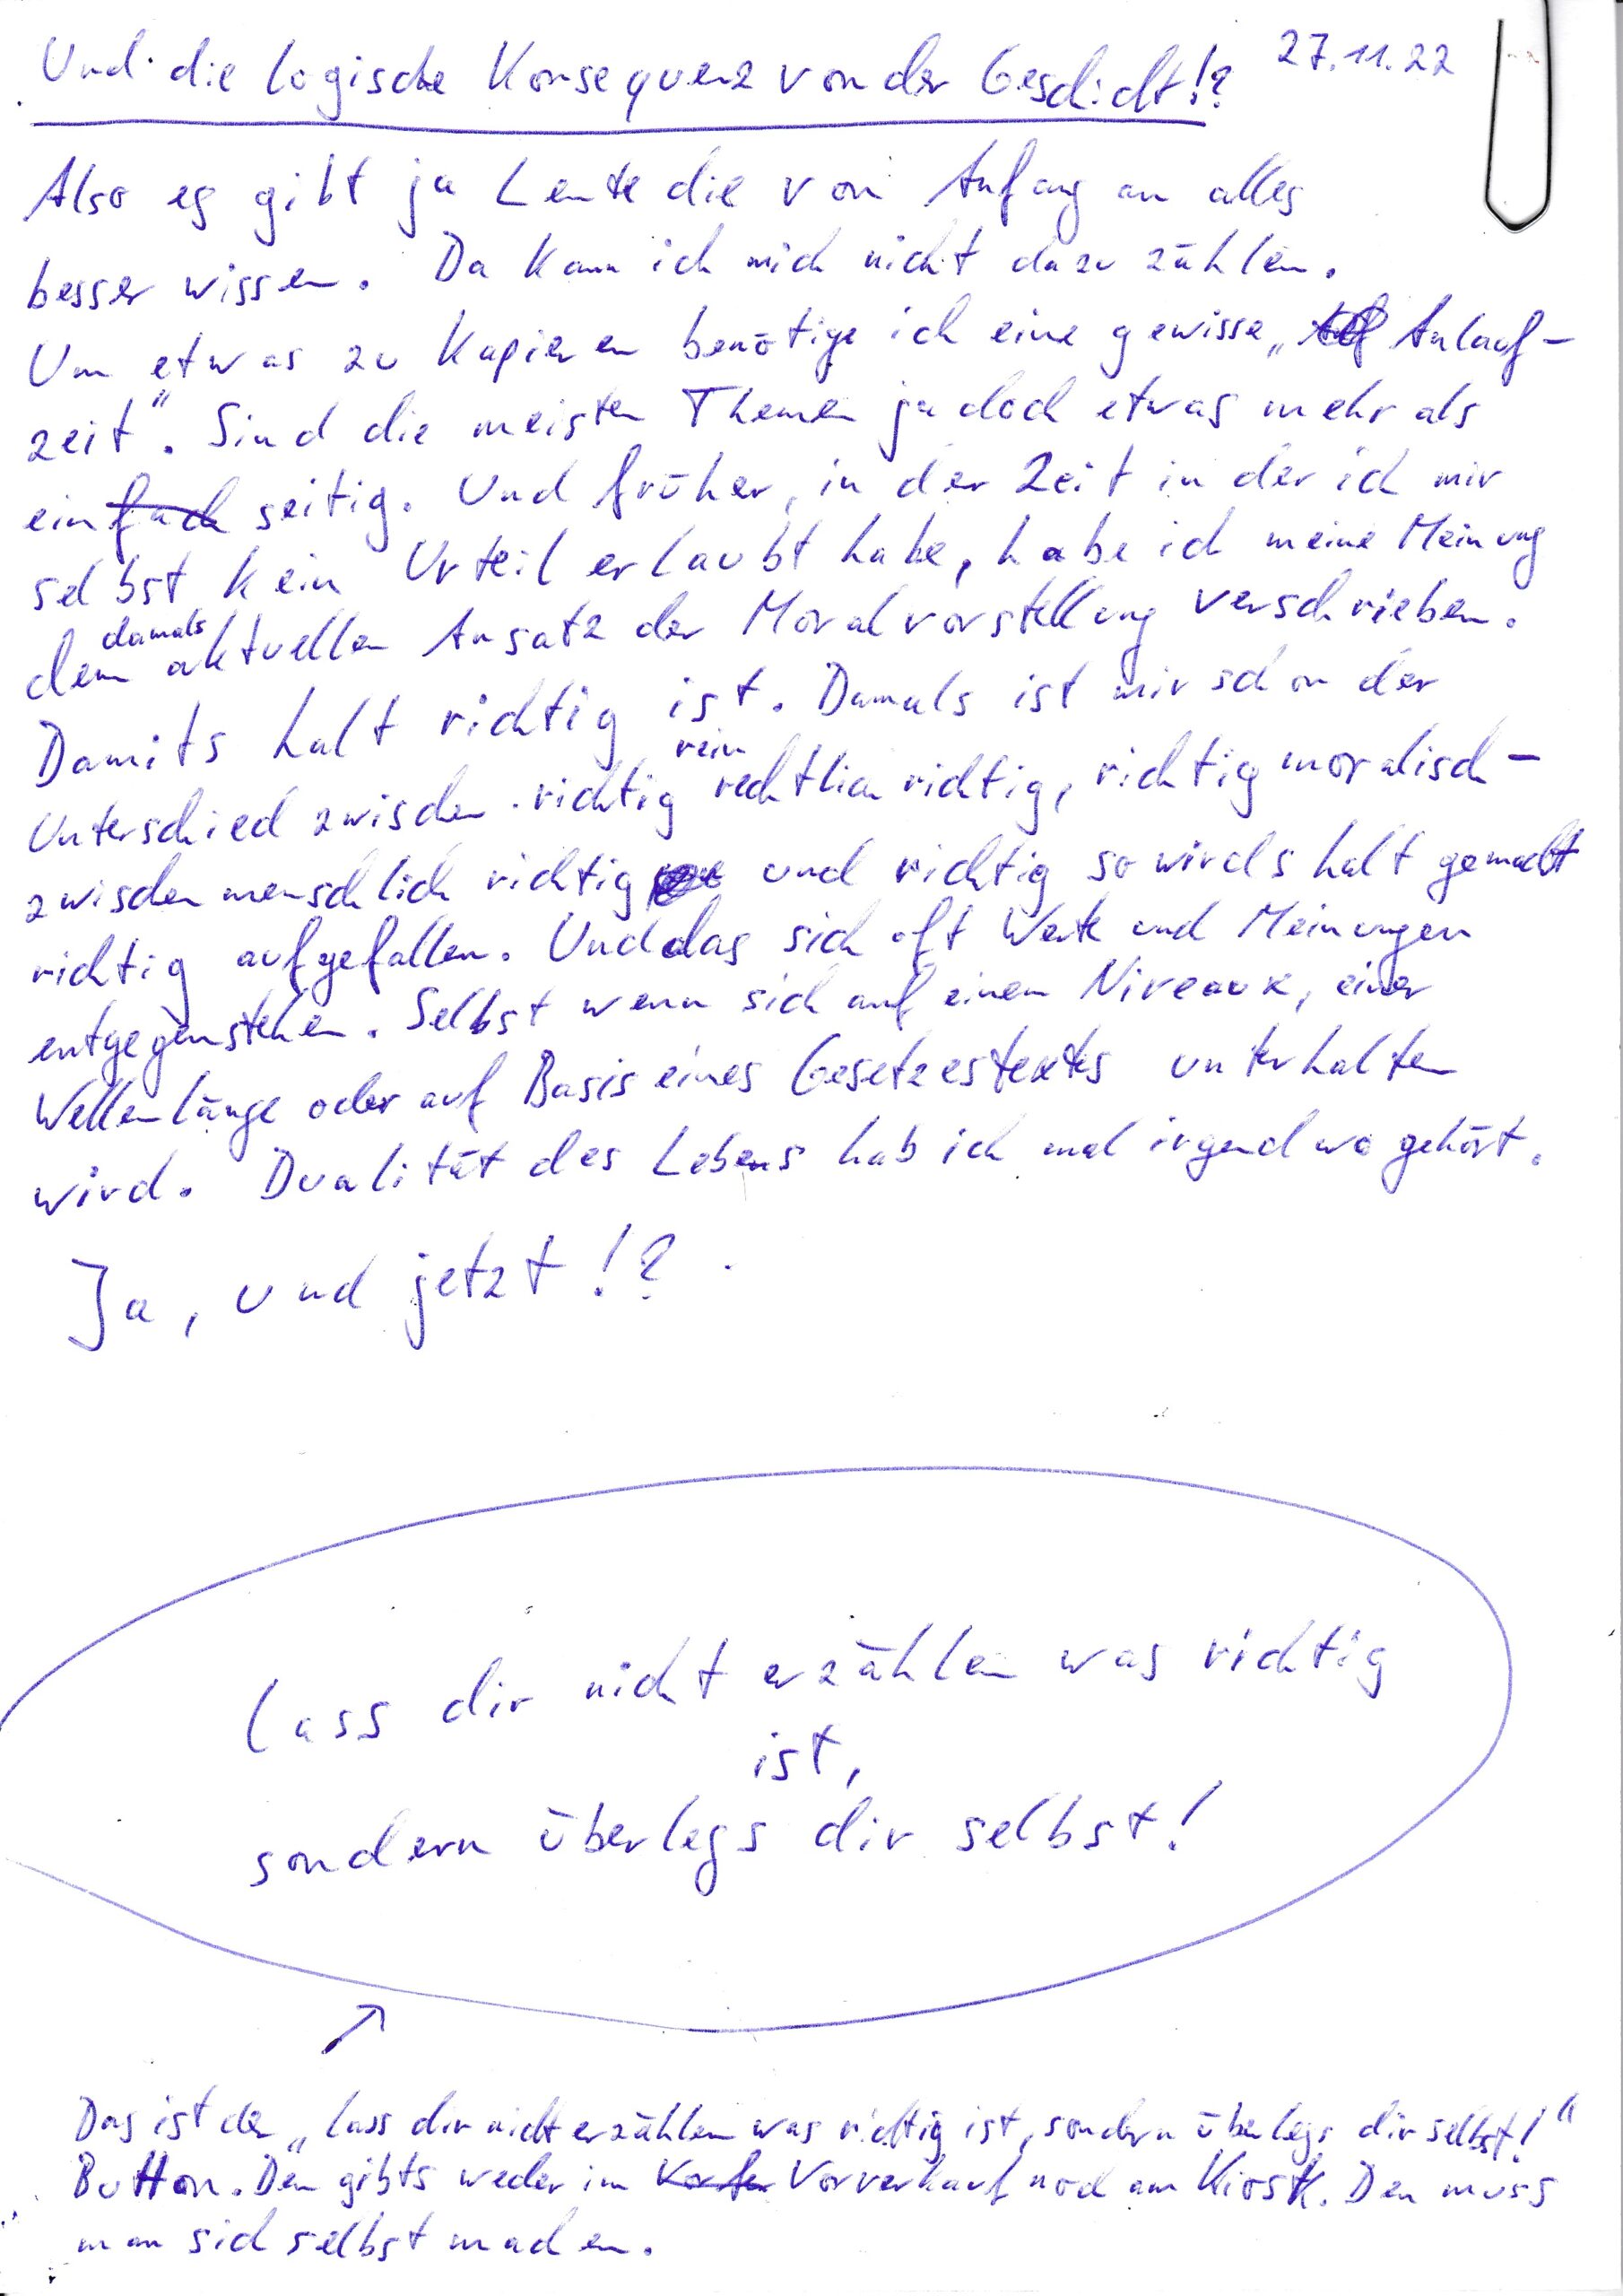 Und die logische Konsequenz von der Geschicht!? 27.11.22
Also es gibt ja Leute die von Anfang an alles
besser wissen. Da kann ich mich nicht dazu zählen.
Um etwas zu kapieren benötige ich eine gewisse „Anlauf-
zeit". Sind die meisten Themen ja doch etwas mehr als
einfach seitig. Und früher, in der Zeit in der ich mir
selbst kein Urteil erlaubt habe, habe ich meine Meinung
dem damals aktuellen Ansatz der Moralvorstellung verschrieben.
Damits halt richtig ist. Damals ist mir schon der
Unterschied zwischen richtig rein rechtlich richtig, richtig moralisch-
zwischenmenschlich richtig und richtig so wirds halt gemacht
richtig aufgefallen. Und das sich oft Werte und Meinungen
entgegenstehen. Selbst wenn sich auf einem Niveaux, einer
Wellenlänge oder auf Basis eines Gesetzestextes unterhalten
wird. Dualität des Lebens hab ich mal irgendwo gehört.
Ja, und jetzt!?
Lass dir nicht erzählen was richtig
ist,
sondern überlegs dir selbst!
Das ist der „Lass dir nicht erzählen was richtig ist, sondern überlegs dir selbst!"
Button. Den gibts weder im Vorverkauf noch am Kiosk. Den muss
man sich selbst machen.